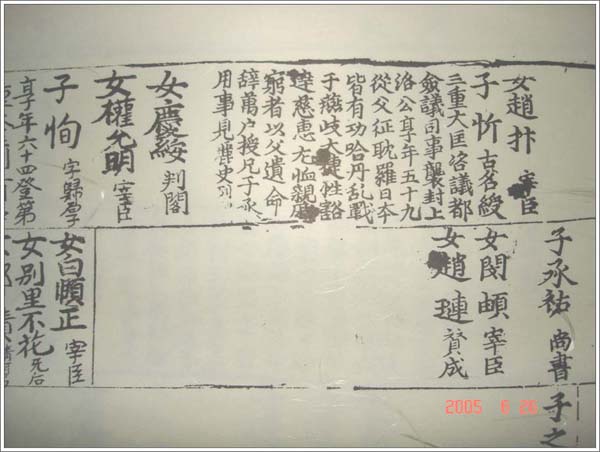 女趙抃 宰臣
子忻 古名綬
三重大匡咨議都
僉議司事襲封上
洛公享年五十九
從父征耽羅日本
皆有功哈丹乱戰
于燕岐大捷性豁
達慈惠尤恤親戚
窮者以父遺命
辞萬户授兄子承
用事見麗史列
女慶綏 判閣
女權允明 宰臣
子恂 字歸厚
享年六十四登第
子承祐 尚書
女閔頔 宰臣
女趙璉 賛成
女白頤正 宰臣
女別里不花 元
子之
2005 6 26